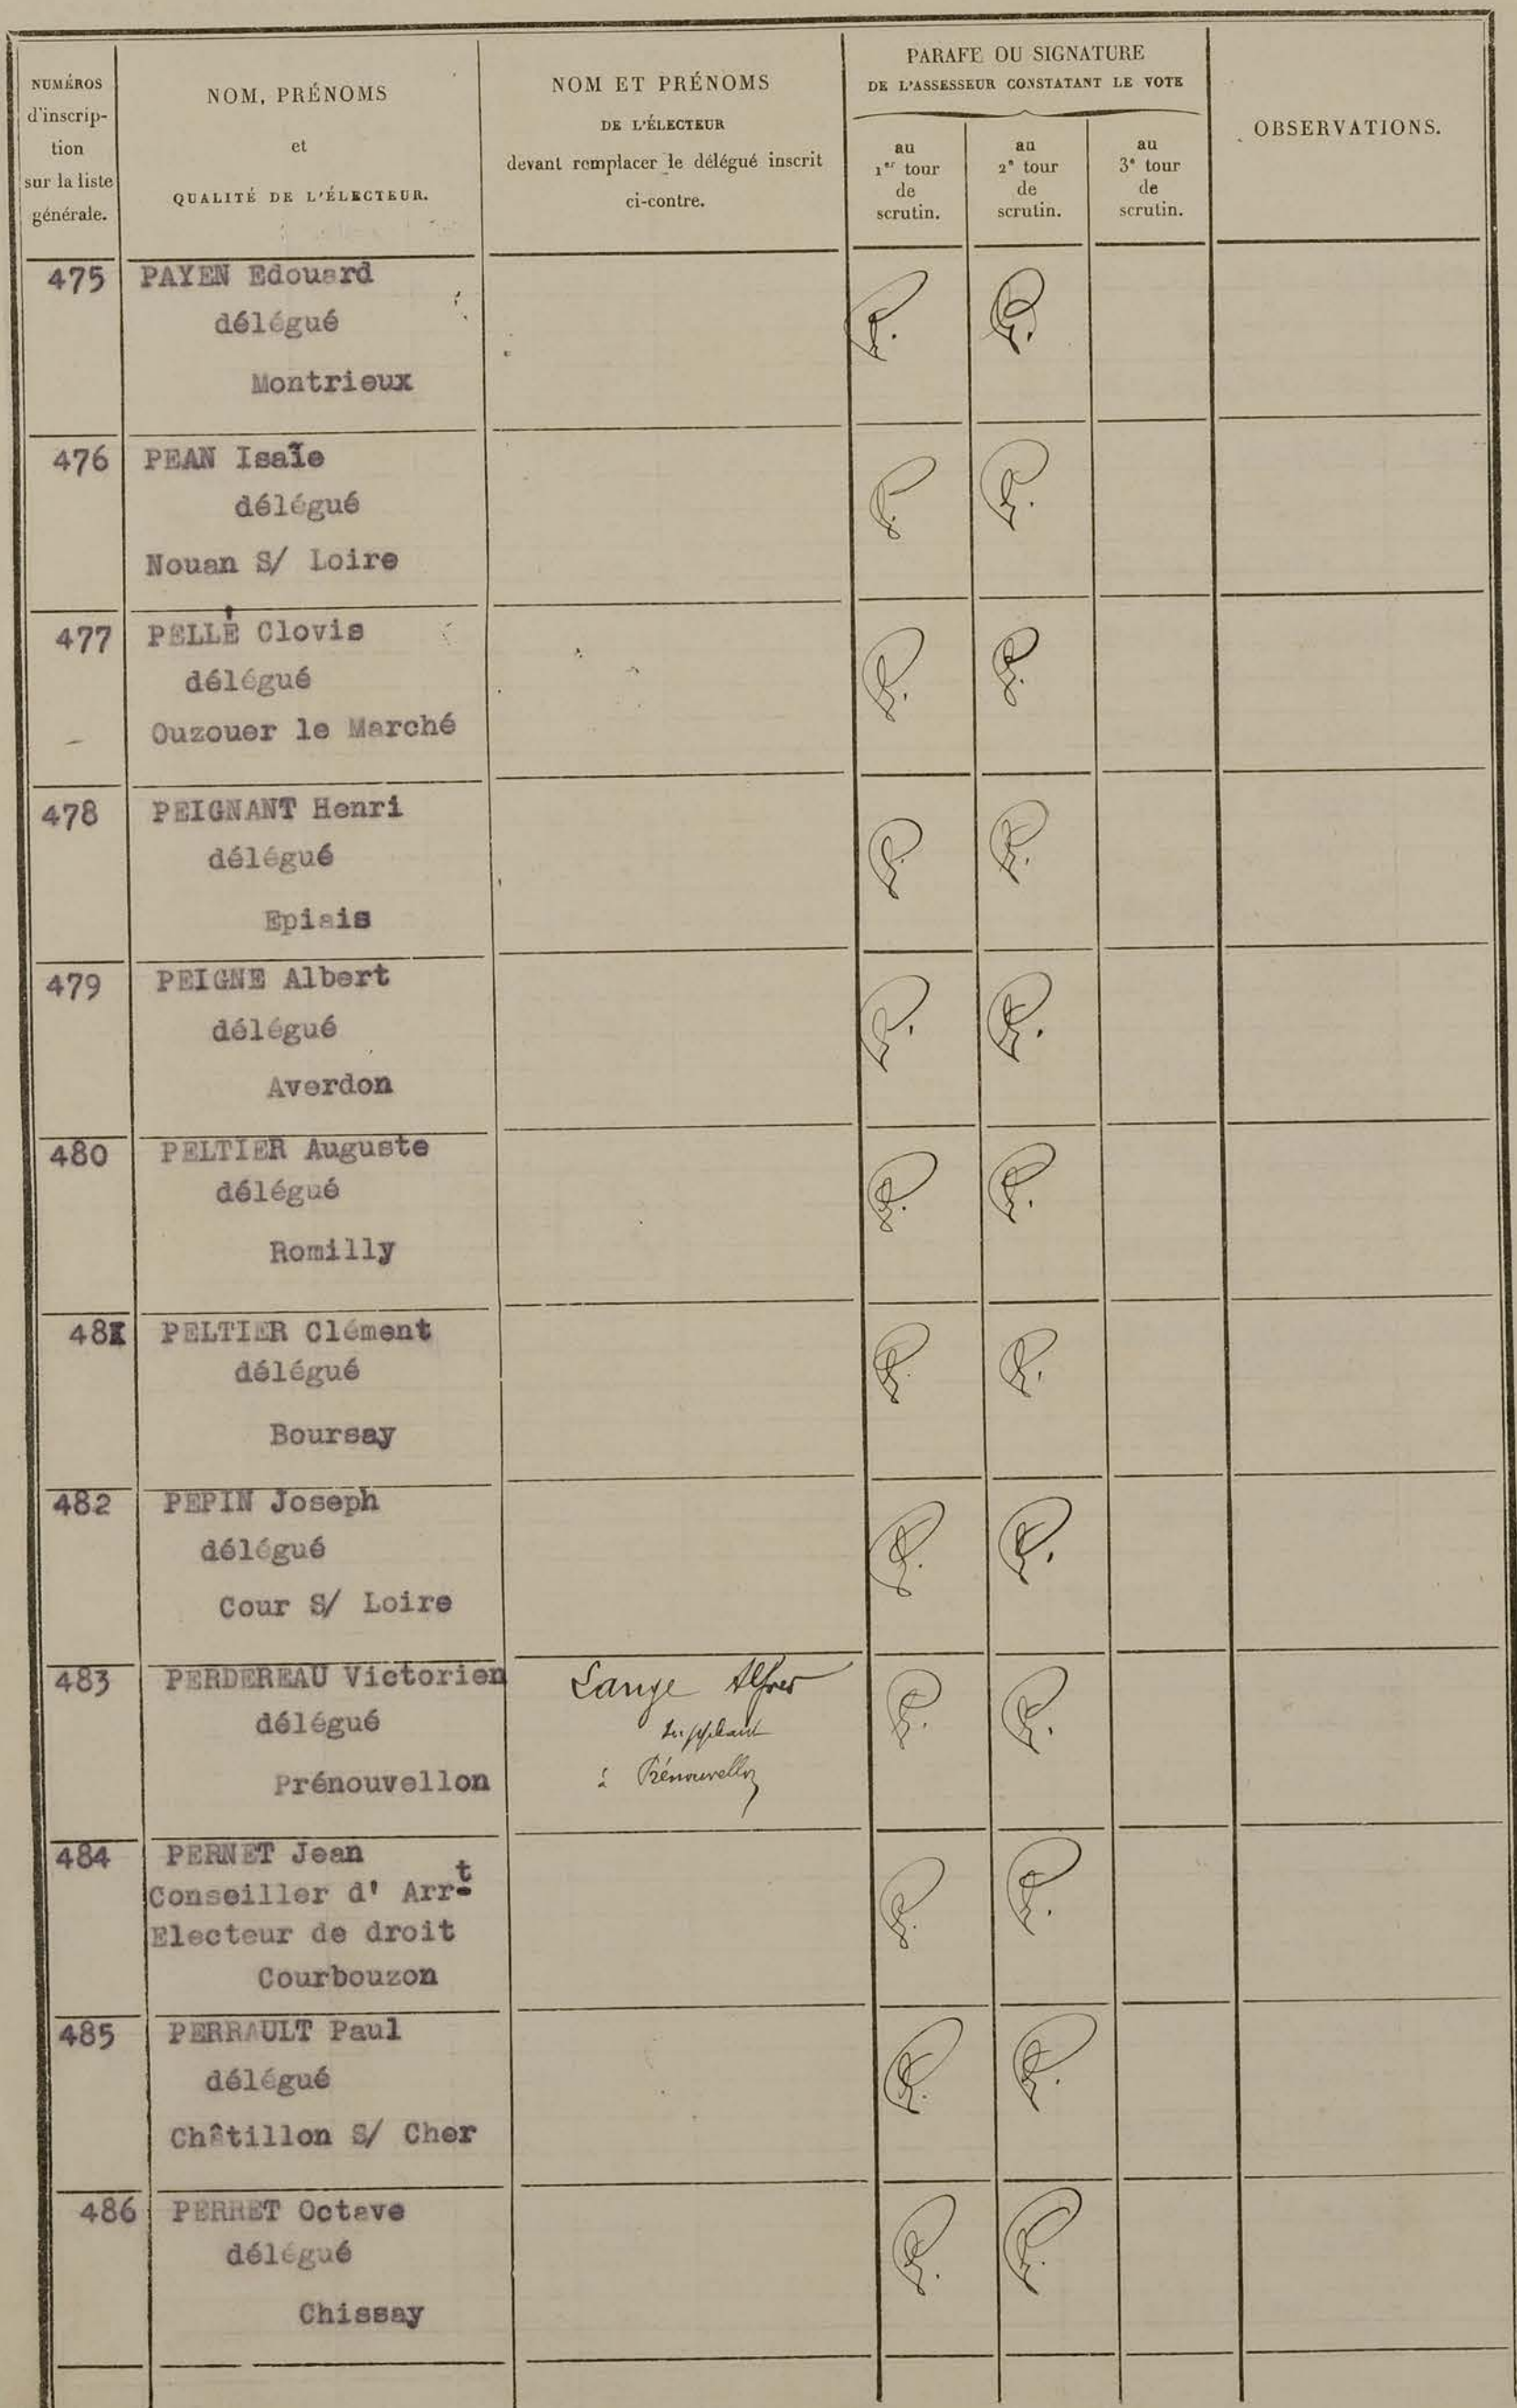 NUMÉROS
d'inscrip-
tion
sur la liste
générale.
NOM, PRÉNOMS
et
QUALITÉ DE L'ÉLECTEUR.
NOM ET PRÉNOMS
DE L'ÉLECTEUR
devant remplacer le délégué inscrit
ci-contre.
PARAFE OU SIGNATURE
DE L'ASSESSEUR CONSTATANT LE VOTE
au
1er tour
de
scrutin.
au
2e tour
de
scrutin.
au
3e tour
de
scrutin.
OBSERVATIONS.
475 PAYEN Edouard
délégué
Montrieux
476 PEAN Isaïe
délégué
Nouan S/ Loire
477 PELLÉ Clovis
délégué
Ouzouer le Marché
478 PEIGNANT Henri
délégué
Epiais
479 PEIGNE Albert
délégué
Averdon
480 PELTIER Auguste
délégué
Romilly
481 PELTIER Clément
délégué
Boursay
482 PEPIN Joseph
délégué
Cour S/ Loire
483 PERDEREAU Victorien Lange Alfred
délégué suppléant
Prénouvellon à Prénouvellon
484 PERNET Jean
Conseiller d' Arrt
Electeur de droit
Courbouzon
485 PERRAULT Paul
délégué
Châtillon S/ Cher
486 PERRET Octave
délégué
Chissay